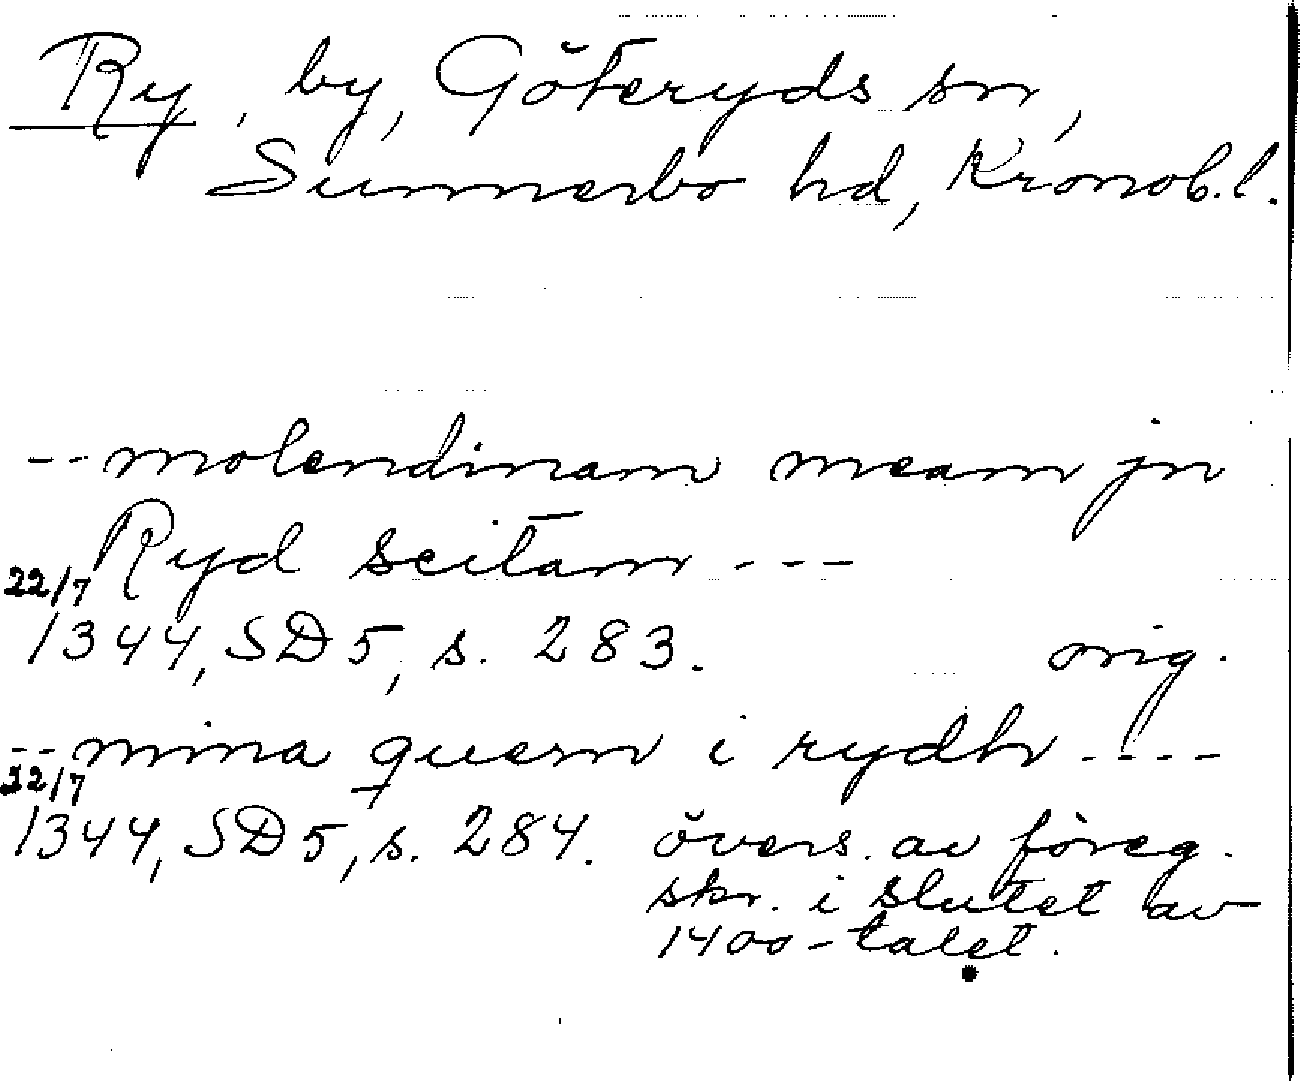 Ry, by, Göteryds sn,
Sunnerbo hd, Kronob.l.
-- molendinam meam jn
Ryd seitam ---
22/7
1344, SD 5, s. 283. orig.
-- mina quern i rydh ----
22/7
1344, SD 5, s. 284. övers. av föreg.
skr. i slutet av
1400-talet.